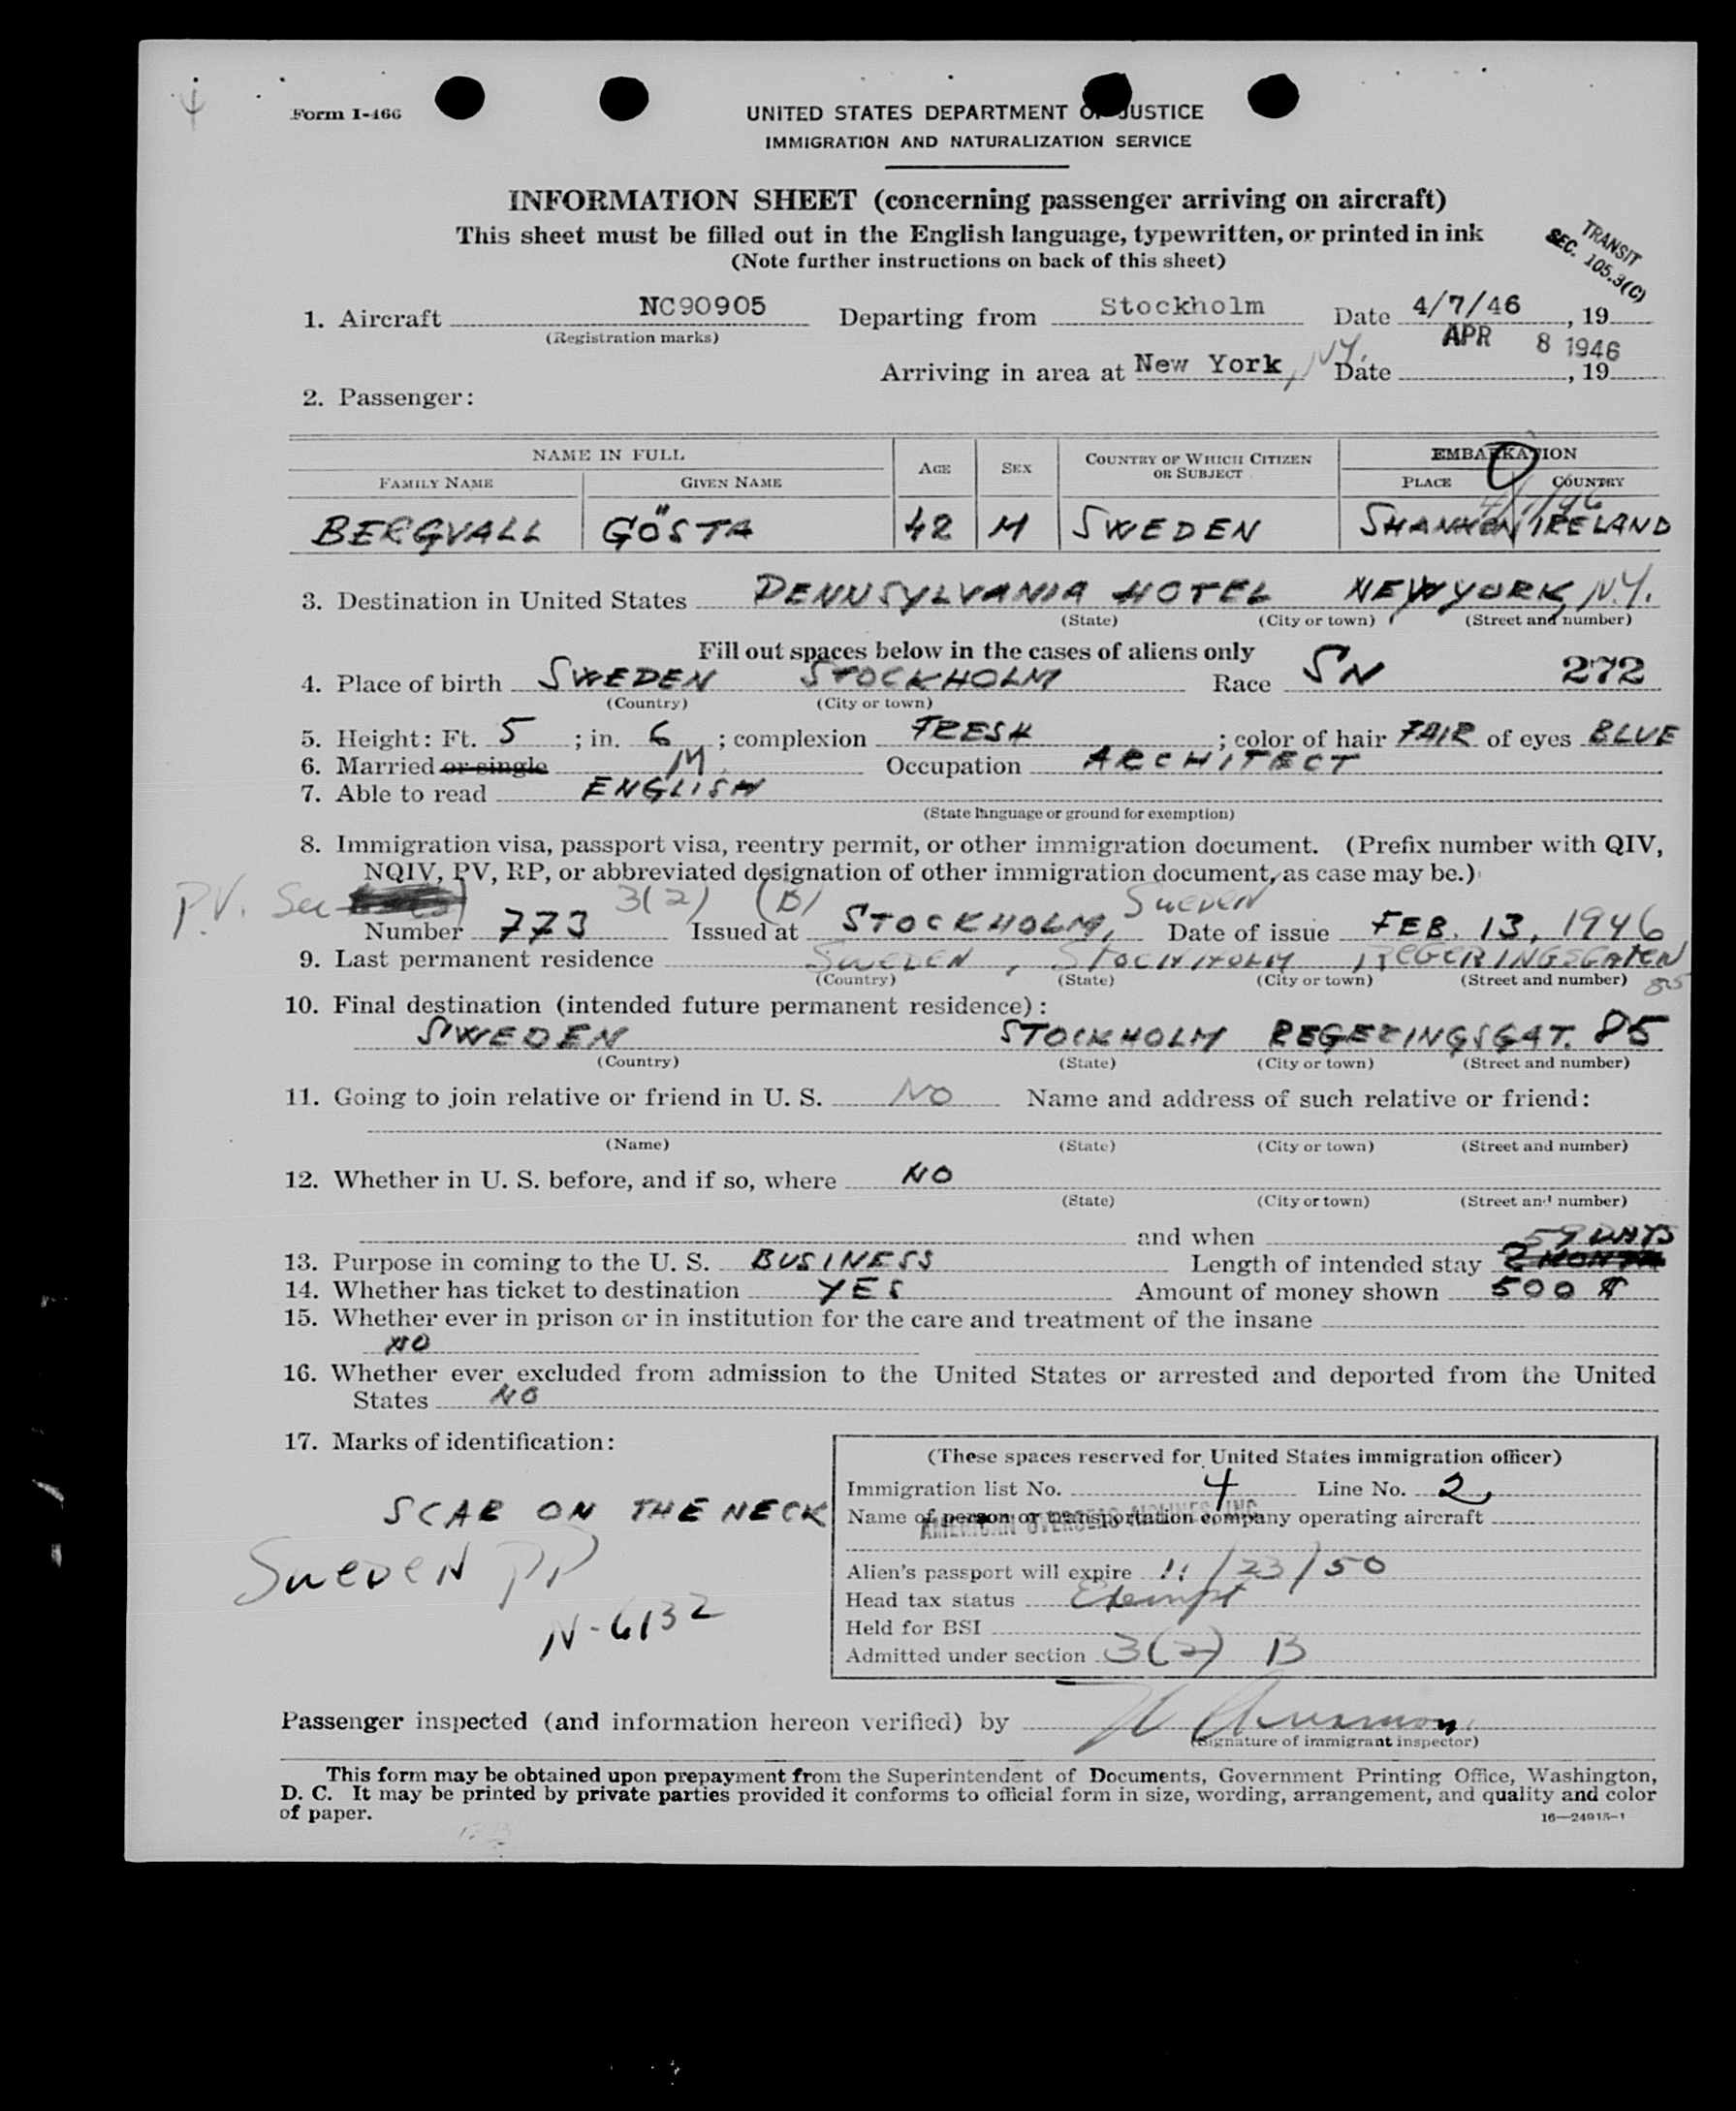 Form I-466
UNITED STATES DEPARTMENT OF JUSTICE
IMMIGRATION AND NATURALIZATION SERVICE
INFORMATION SHEET (concerning passenger arriving on aircraft)
This sheet must be filled out in the English language, typewritten, or printed in ink
(Note further instructions on back of this sheet)
TRANSIT
SEC. 105.3(C)
1. Aircraft NC90905 Departing from Stockholm Date 4/7/46, 19
(Registration marks)
APR 8 1946
Arriving in area at New York, N.Y. Date , 19
2. Passenger:
NAME IN FULL AGE SEX COUNTRY OF WHICH CITIZEN OR SUBJECT EMBARKATION
FAMILY NAME GIVEN NAME PLACE COUNTRY
4/7/46
BERGVALL GÖSTA 42 M SWEDEN SHANNON IRELAND
3. Destination in United States PENNSYLVANIA HOTEL NEW YORK, N.Y.
(State) (City or town) (Street and number)
Fill out spaces below in the cases of aliens only
4. Place of birth SWEDEN STOCKHOLM Race SN 272
(Country) (City or town)
5. Height: Ft. 5; in. 6; complexion FRESH; color of hair FAIR of eyes BLUE
6. Married or single M Occupation ARCHITECT
7. Able to read ENGLISH
(State language or ground for exemption)
8. Immigration visa, passport visa, reentry permit, or other immigration document. (Prefix number with QIV,
NQIV, PV, RP, or abbreviated designation of other immigration document, as case may be.)
P.V. Sec 3(2) (B) Sweden
Number 773 Issued at STOCKHOLM, Date of issue FEB. 13, 1946
9. Last permanent residence SWEDEN, STOCKHOLM, REGERINGSGATEN 85
(Country) (State) (City or town) (Street and number)
10. Final destination (intended future permanent residence):
SWEDEN STOCKHOLM REGERINGSGAT. 85
(Country) (State) (City or town) (Street and number)
11. Going to join relative or friend in U. S. NO Name and address of such relative or friend:
(Name) (State) (City or town) (Street and number)
12. Whether in U. S. before, and if so, where NO
(State) (City or town) (Street and number)
and when
59 DAYS
13. Purpose in coming to the U. S. BUSINESS Length of intended stay 2 MONTH
14. Whether has ticket to destination YES Amount of money shown 500 $
15. Whether ever in prison or in institution for the care and treatment of the insane
NO
16. Whether ever excluded from admission to the United States or arrested and deported from the United
States NO
17. Marks of identification:
SCAR ON THE NECK
SWEDEN PP
N-6132
(These spaces reserved for United States immigration officer)
Immigration list No. 4 Line No. 2
Name of person or transportation company operating aircraft
AMERICAN OVERSEAS AIRLINES, INC.
Alien's passport will expire 11/23/50
Head tax status Exempt
Held for BSI
Admitted under section 3(2) B
Passenger inspected (and information hereon verified) by
(Signature of immigrant inspector)
This form may be obtained upon prepayment from the Superintendent of Documents, Government Printing Office, Washington,
D. C. It may be printed by private parties provided it conforms to official form in size, wording, arrangement, and quality and color
of paper.
16—24915-1